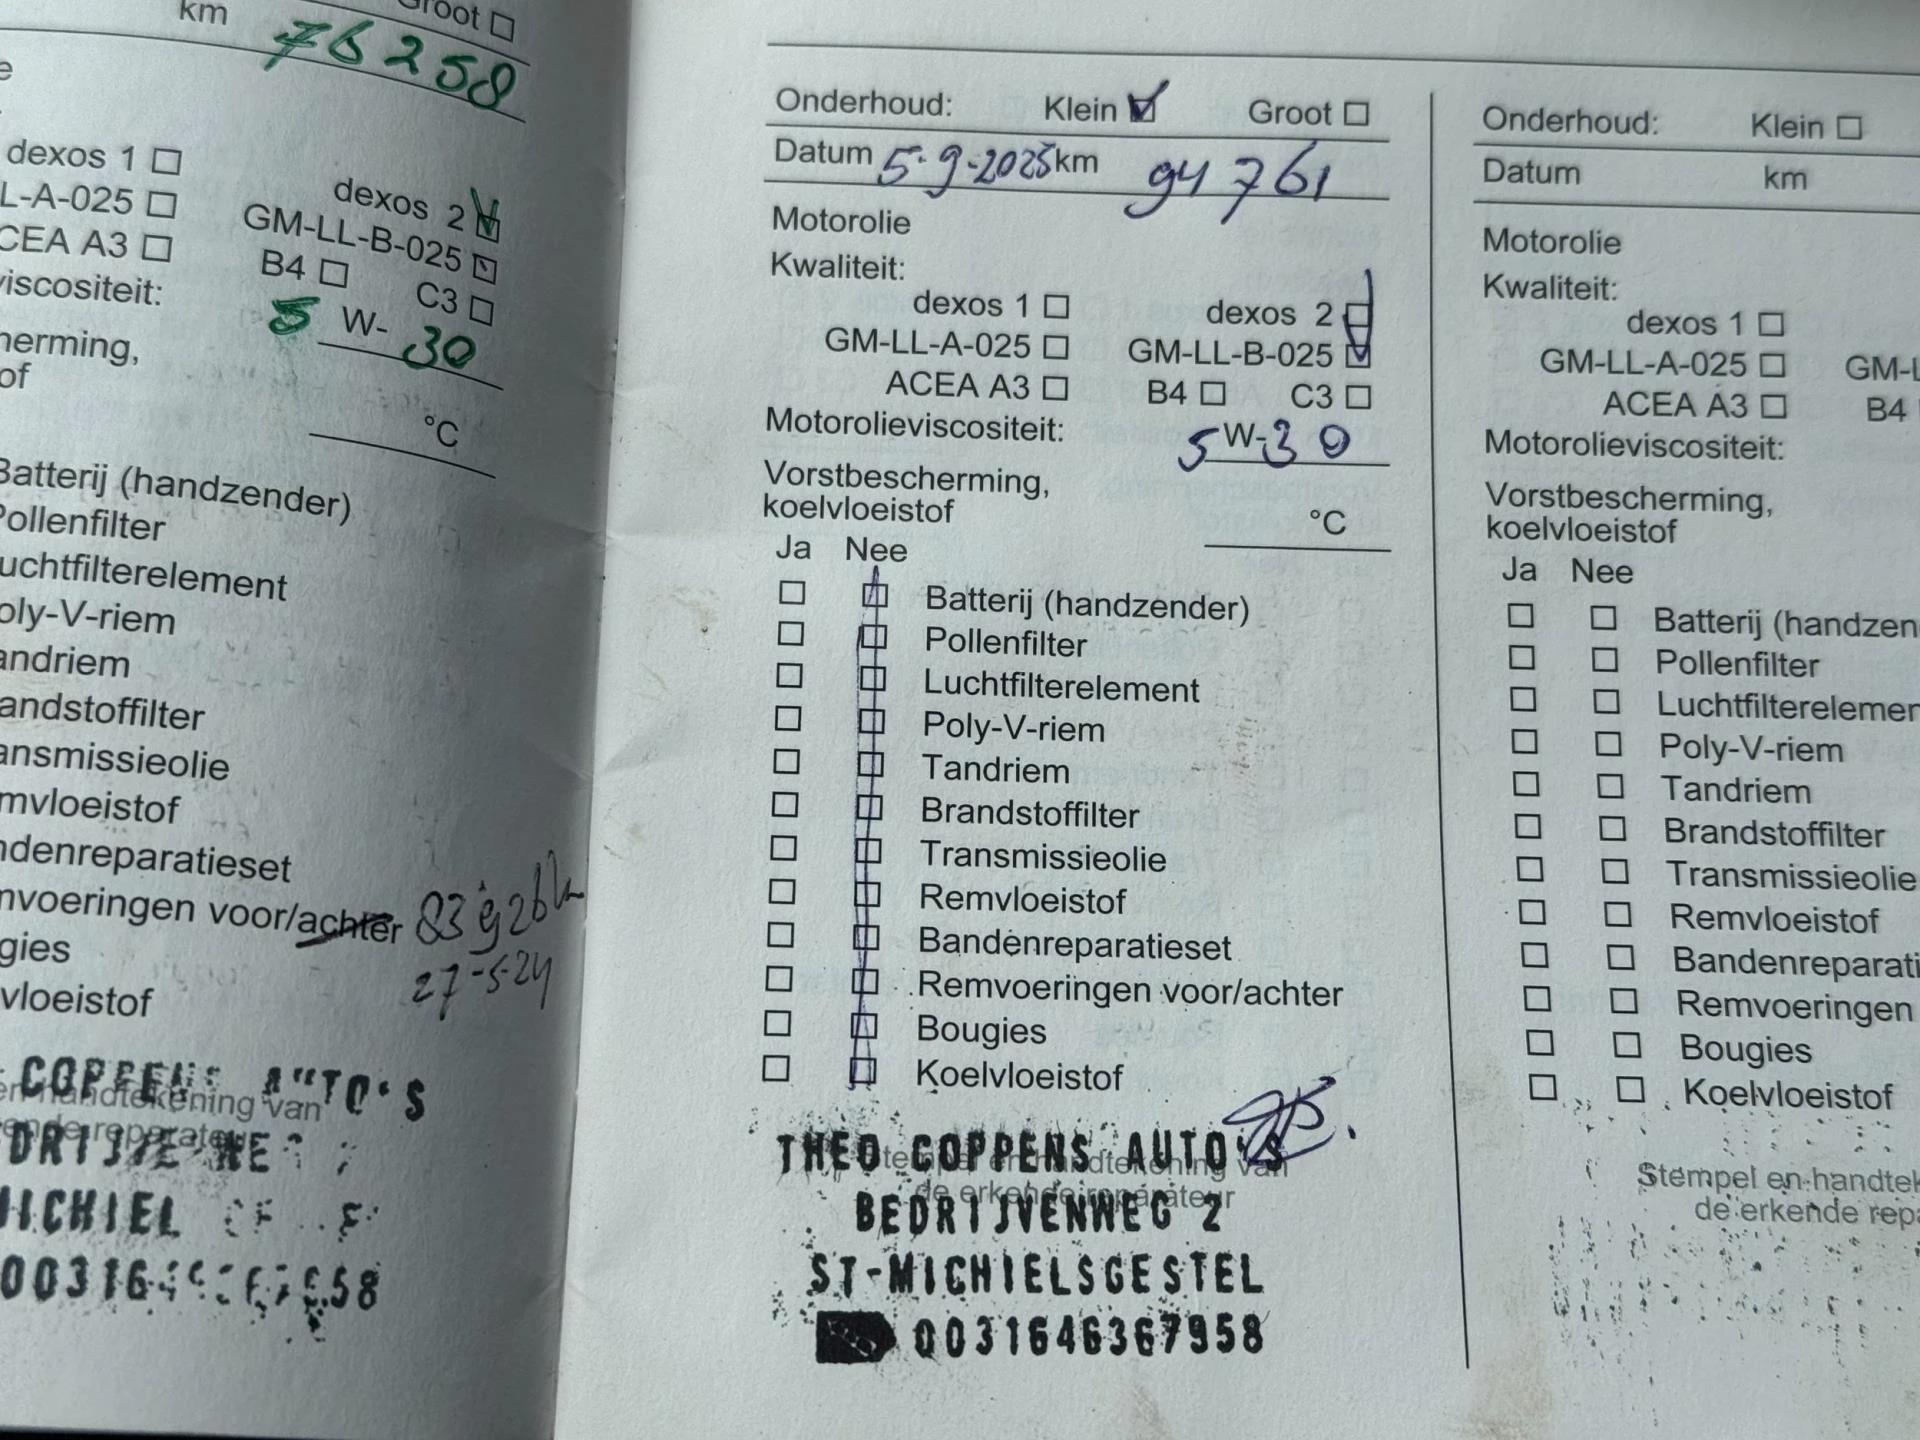 km
Groot
76258
dexos 1
dexos 2
L-A-025
GM-LL-B-025
CEA A3
B4
C3
viscositeit:
5 W- 30
herming,
of
°C
Batterij (handzender)
Pollenfilter
uchtfilterelement
oly-V-riem
andriem
andstoffilter
ansmissieolie
mvloeistof
ndenreparatieset
nvoeringen voor/achter
gies
27-5-24
vloeistof
COPPENS AUTO'S
en handtekening van
00316
58
Onderhoud: Klein Groot
Datum 5-9-2025 km 94761
Motorolie
Kwaliteit:
dexos 1 dexos 2
GM-LL-A-025 GM-LL-B-025
ACEA A3 B4 C3
Motorolieviscositeit: 5 W-30
Vorstbescherming,
koelvloeistof °C
Ja Nee
Batterij (handzender)
Pollenfilter
Luchtfilterelement
Poly-V-riem
Tandriem
Brandstoffilter
Transmissieolie
Remvloeistof
Bandenreparatieset
Remvoeringen voor/achter
Bougies
Koelvloeistof
THEO COPPENS AUTO'S
Stempel en handtekening van
de erkende reparateur
BEDRIJVENWEG 2
ST-MICHIELSGESTEL
0031646367958
Onderhoud: Klein
Datum km
Motorolie
Kwaliteit:
dexos 1
GM-LL-A-025 GM-L
ACEA A3 B4
Motorolieviscositeit:
Vorstbescherming,
koelvloeistof
Ja Nee
Batterij (handzen
Pollenfilter
Luchtfilterelemen
Poly-V-riem
Tandriem
Brandstoffilter
Transmissieolie
Remvloeistof
Bandenreparati
Remvoeringen
Bougies
Koelvloeistof
Stempel en handtek
de erkende repa